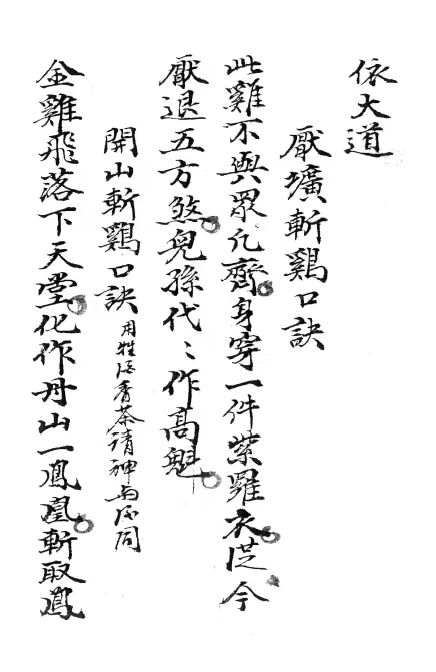 依大道
厭壙斬鷄口訣
此雞不與眾凡齊。身穿一件紫羅衣。從今
厭退五方煞。兒孫代〻作高魁。
開山斬鷄口訣 用牲酒香茶請神与同
金雞飛落下天堂。化作丹山一鳳凰。斬取鳳